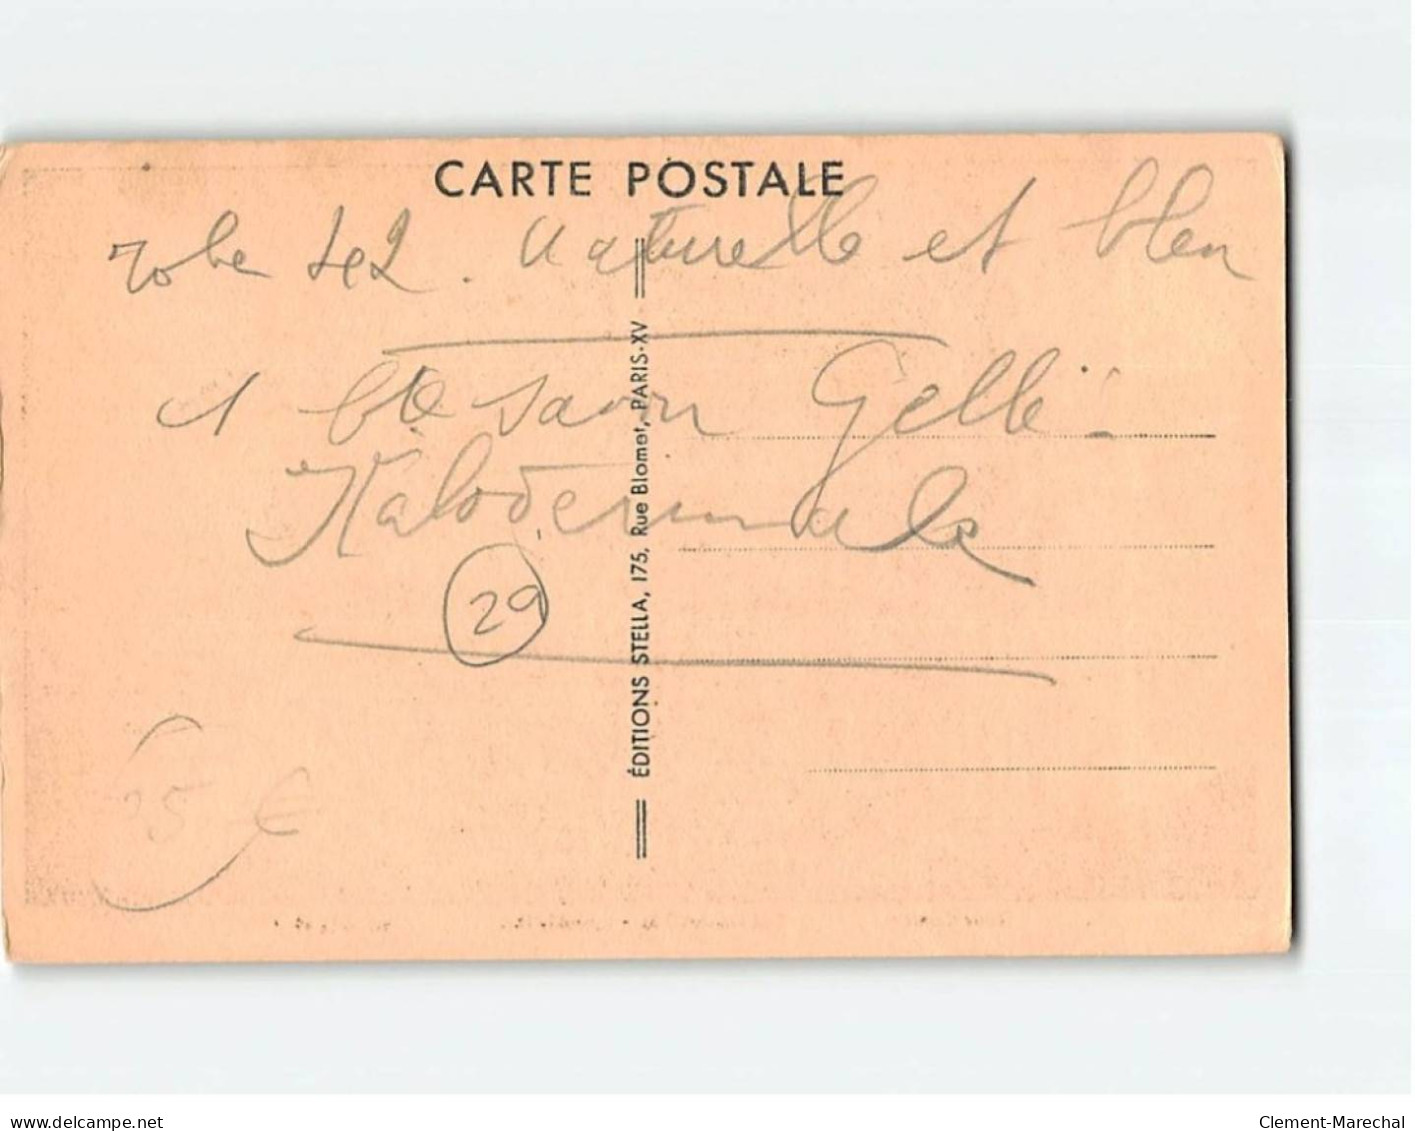 CARTE POSTALE
robe 42. naturelle et bleu
1 bte savon Gellé
Kaloderma
29
5 €
ÉDITIONS STELLA, 175, Rue Blomet, PARIS-XV
www.delcampe.net
Clement-Marechal